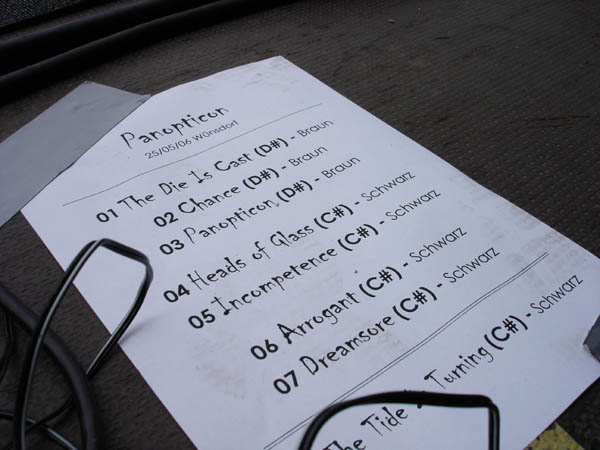 Panopticon
25/05/06 Wünsdorf
01 The Die Is Cast (D#) - Braun
02 Chance (D#) - Braun
03 Panopticon (D#) - Braun
04 Heads of Glass (C#) - Schwarz
05 Incompetence (C#) - Schwarz
06 Arrogant (C#) - Schwarz
07 Dreamsore (C#) - Schwarz
The Tide Turning (C#) - Schwarz